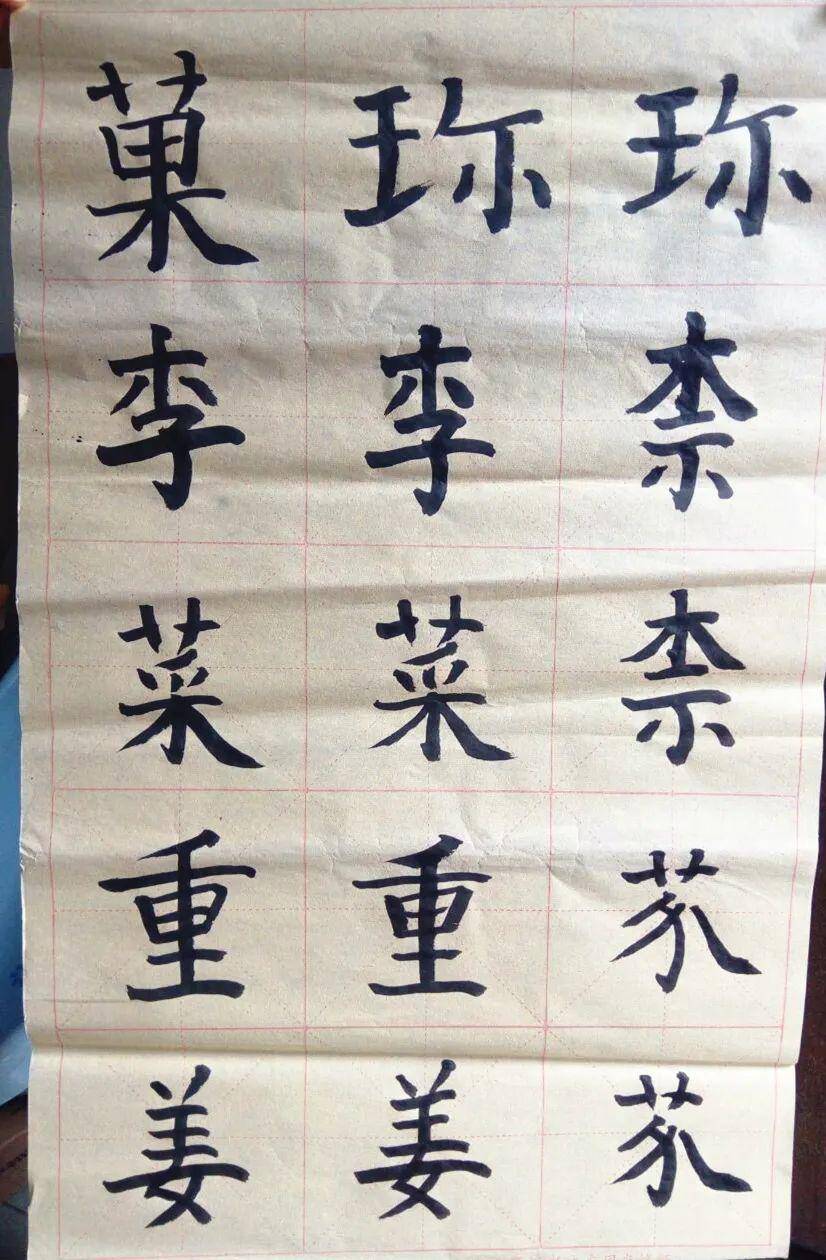 菓珎珎
李李柰
菜菜柰
重重芥
姜姜芥